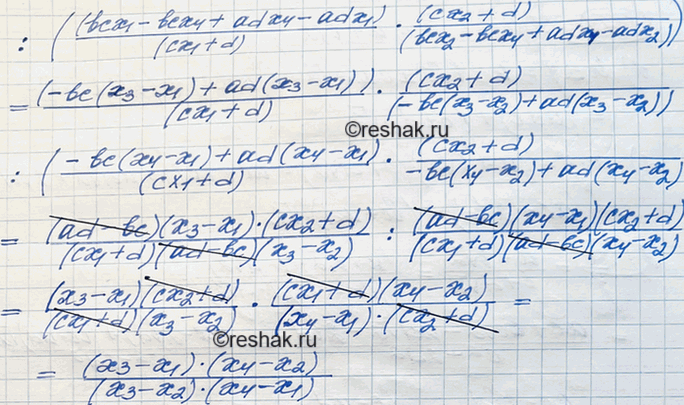 : ( (вcx₁ - вcx₄ + adx₄ - adx₁) / (cx₁ + d) · (cx₂ + d) / (вcx₂ - вcx₄ + adx₄ - adx₂) )
= (-вc(x₃ - x₁) + ad(x₃ - x₁)) / (cx₁ + d) · (cx₂ + d) / (-вc(x₃ - x₂) + ad(x₃ - x₂))
©reshak.ru
: ( -вc(x₄ - x₁) + ad(x₄ - x₁) / (cx₁ + d) · (cx₂ + d) / -вc(x₄ - x₂) + ad(x₄ - x₂)
= (ad - вc)(x₃ - x₁)·(cx₂ + d) / (cx₁ + d)(ad - вc)(x₃ - x₂) : (ad - вc)(x₄ - x₁)(cx₂ + d) / (cx₁ + d)(ad - вc)(x₄ - x₂)
= (x₃ - x₁)(cx₂ + d) / (cx₁ + d)(x₃ - x₂) · (cx₁ + d)(x₄ - x₂) / (x₄ - x₁)·(cx₂ + d) =
©reshak.ru
= (x₃ - x₁)·(x₄ - x₂) / (x₃ - x₂)·(x₄ - x₁)